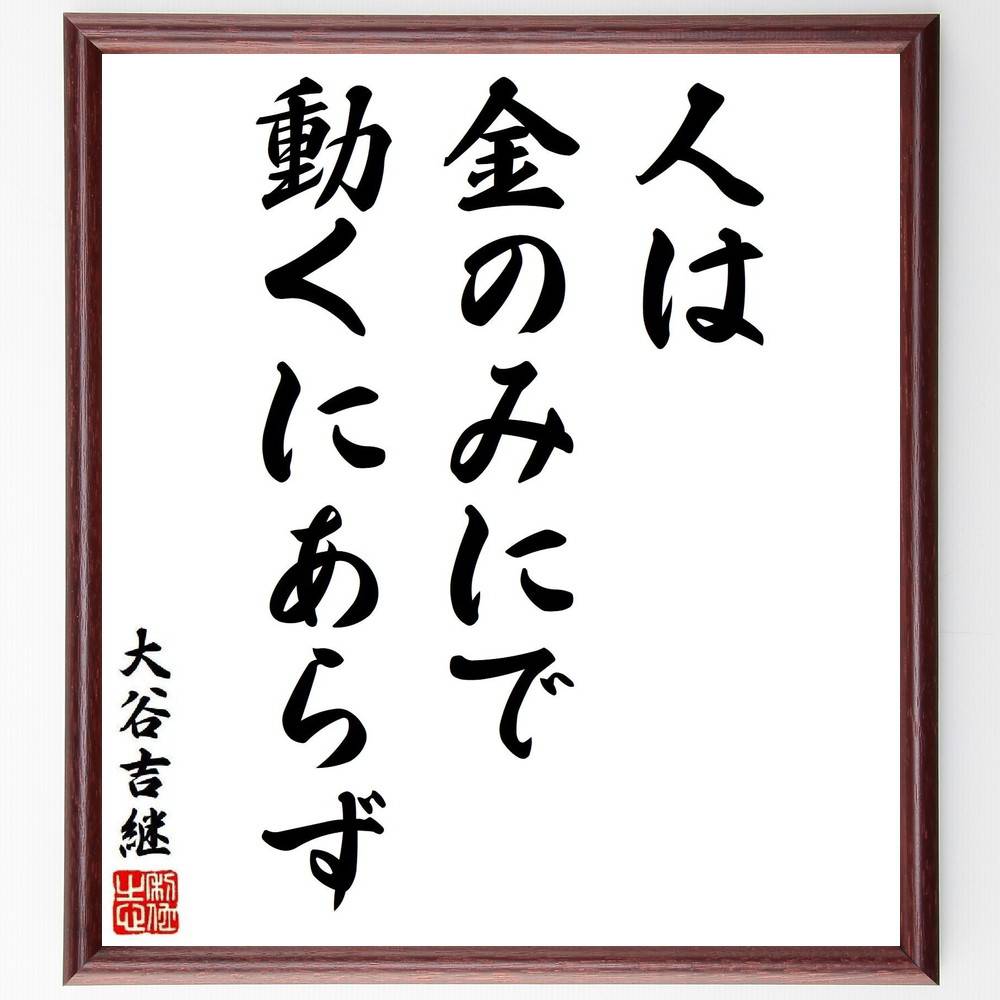 人は
金のみにで
動くにあらず
大谷吉継